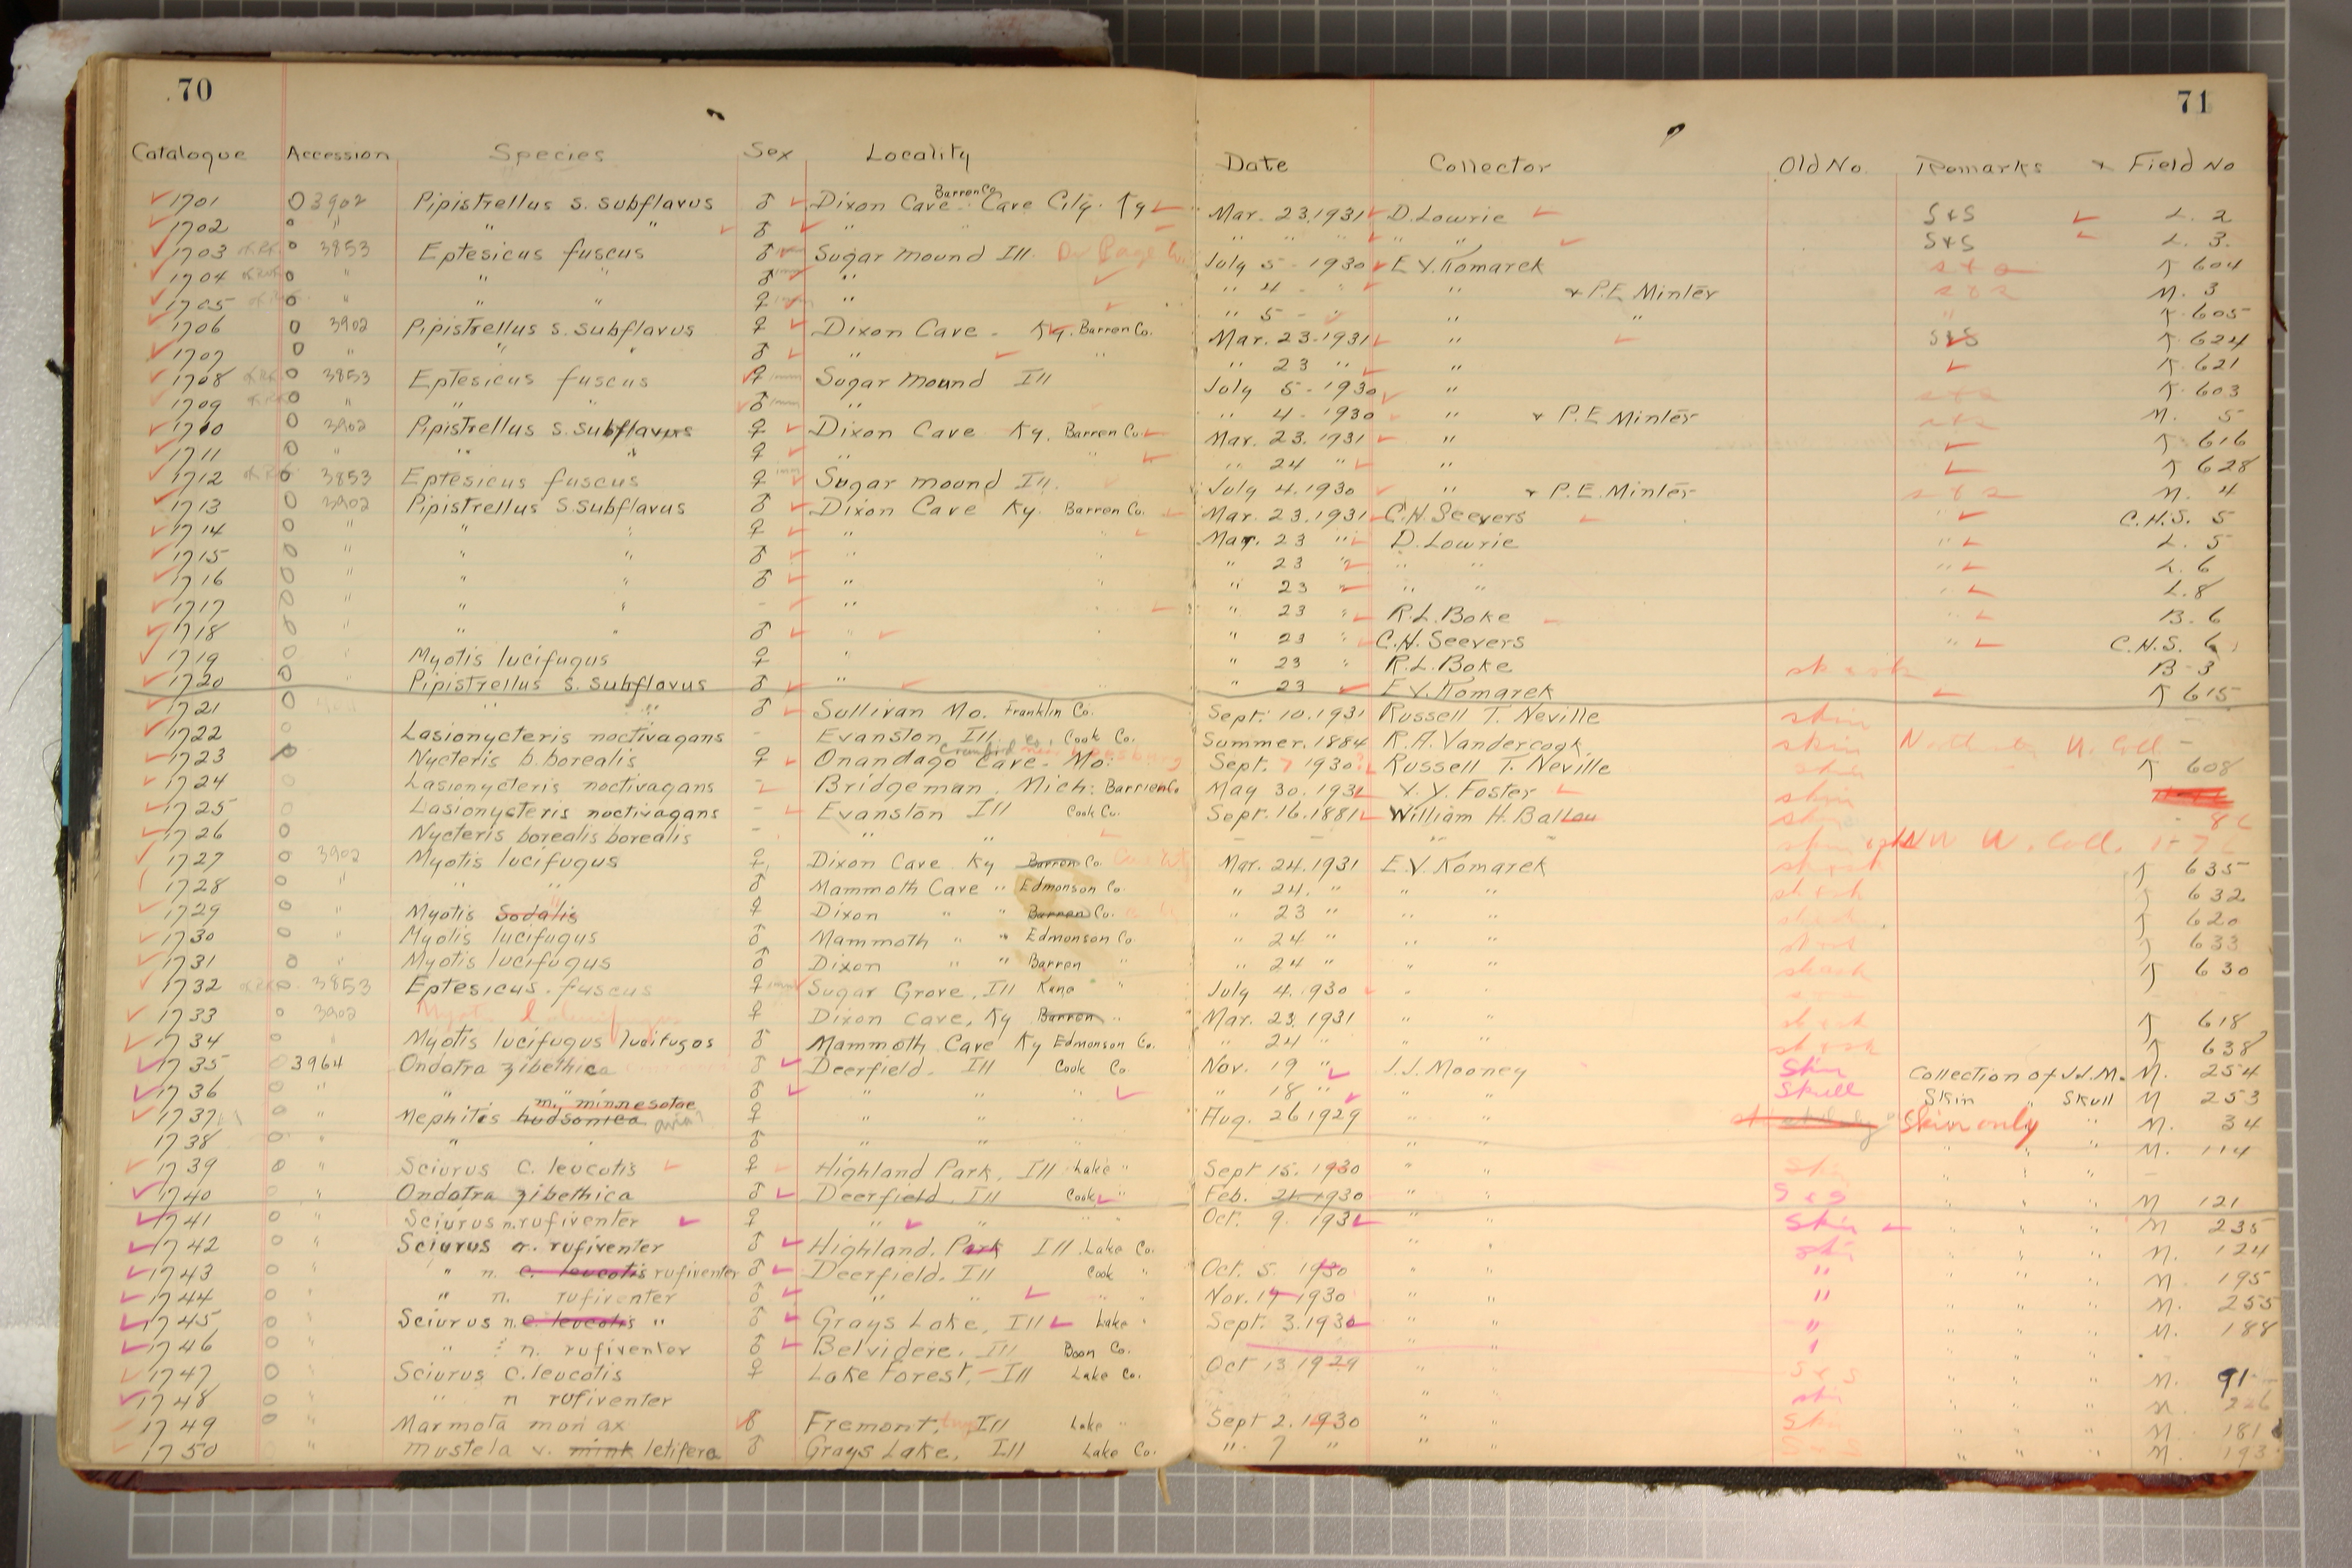 70
71
Catalogue Accession Species Sex Locality Date Collector Old No. Remarks & Field No
1701 O 3902 Pipistrellus s. subflavus ♂ Dixon Cave Barren Co. Cave City. Ky Mar. 23. 1931 D. Lowrie S & S L. 2
1702 o " " " ♂ " " " " " " " S & S L. 3.
1703 o 3853 Eptesicus fuscus ♂ Sugar mound Ill July 5 - 1930 E. V. Komarek K 604
1704 o " " " ♂ " " 4 - " " & P.E. Minter M. 3
1705 o " " " ♀ " " 5 - " " K. 605
1706 O 3902 Pipistrellus s. subflavus ♀ Dixon Cave - Ky. Barren Co. Mar. 23. 1931 " S&S K. 624
1707 O " " " ♂ " " " 23 " " K. 621
1708 O 3853 Eptesicus fuscus ♀ Sugar mound Ill July 5 - 1930 " K. 603
1709 O " " " ♂ " " 4 - 1930 " & P.E. Minter M. 5
1710 O 3902 Pipistrellus s. subflavus ♀ Dixon Cave Ky. Barren Co. Mar. 23. 1931 " K 616
1711 O " " " ♀ " " " 24 " " K 628
1712 o 3853 Eptesicus fuscus ♀ Sugar mound Ill. July 4. 1930 " & P.E. Minter M. 4
1713 O 3902 Pipistrellus s. subflavus ♂ Dixon Cave Ky. Barren Co. Mar. 23. 1931 C.H. Seevers C.H.S. 5
1714 O " " " ♀ " " Mar. 23 " D. Lowrie " L. 5
1715 O " " " ♂ " " " 23 " " " " L. 6
1716 O " " " ♂ " " " 23 " " " " L. 8
1717 O " " " - " " " 23 " R.L. Boke " B. 6
1718 O " " " ♂ " " " 23 " C.H. Seevers " C.H.S. 6
1719 O " Myotis lucifugus ♀ " " 23 " R.L. Boke B-3
1720 O " Pipistrellus s. subflavus ♂ " " 23 E.V. Komarek K 615
1721 O " " ♂ Sullivan Mo. Franklin Co. Sept. 10. 1931 Russell T. Neville skin
1722 O Lasionycteris noctivagans - Evanston, Ill Cook Co. Summer. 1884 R.A. Vandercook skin
1723 O Nycteris b. borealis ♀ Onandago Cave - Mo. Crawford Co. Sept. 7 1930 Russell T. Neville K 608
1724 O Lasionycteris noctivagans - Bridgeman, Mich. Barrien Co May 30. 1931 Foster skin
1725 O Lasionycteris noctivagans - Evanston Ill Cook Co. Sept. 16. 1881 William H. Ballou
1726 O Nycteris borealis borealis - " "
1727 O 3902 Myotis lucifugus ♀ Dixon Cave Ky Barren Co. Mar. 24. 1931 E.V. Komarek K 635
1728 O " " " ♂ Mammoth Cave " Edmonson Co. " 24. " " " K 632
1729 O " Myotis Sodalis ♀ Dixon " " Barren Co. " 23 " " " K 620
1730 O " Myotis lucifugus ♂ Mammoth " " Edmonson Co " 24 " " " K 633
1731 O " Myotis lucifugus ♂ Dixon " " Barren " " 24 " " " K 630
1732 O 3853 Eptesicus fuscus ♀ Sugar Grove, Ill Kane " July 4. 1930 " "
1733 O 3902 ♀ Dixon Cave, Ky Barren " Mar. 23. 1931 " " K 618
1734 O " Myotis lucifugus lucifugos ♂ Mammoth Cave Ky Edmonson Co. " 24 " " " K 638
1735 O 3964 Ondatra zibethica ♂ Deerfield. Ill Cook Co. Nov. 19 " J.J. Mooney Skin Collection of J.J.M. M. 254
1736 O " " " ♂ " " " " 18 " " " Skull Skin " Skull M 253
1737 O " Mephitis hudsonica m. minnesotae avia? ♀ " " " Aug. 26 1929 " " Skin only " M. 34
1738 O " " " ♂ " " " " " " M. 114
1739 O " Sciurus c. leucotis ♀ Highland Park, Ill Lake " Sept 15. 1930 " " " " "
1740 O " Ondatra zibethica ♂ Deerfield, Ill Cook " Feb. 21 1930 " " S & S " " M 121
1741 O " Sciurus n. rufiventer ♀ " " " Oct. 9. 1931 " " Skin " " M 235
1742 O " Sciurus n. rufiventer ♂ Highland. Park Ill Lake Co. " " " " M. 124
1743 O " " n. c. leucotis rufiventer ♂ Deerfield. Ill Cook " Oct. 5. 1930 " " " " " M. 195
1744 O " " n. rufiventer ♂ " " " Nov. 14 1930 " " " " " M. 255
1745 O " Sciurus n. c. leucotis " ♂ Grays Lake, Ill Lake " Sept. 3. 1930 " " " " " M. 188
1746 O " " n. rufiventer ♂ Belvidere. Ill Boon Co. " " " "
1747 O " Sciurus c. leucotis ♀ Lake Forest, Ill Lake Co. Oct 13. 1929 " " S & S " " M. 91
1748 O " " n rufiventer " " " " M. 226
1749 O " Marmota monax ♂ Fremont, Ill Lake " Sept 2. 1930 " " " " M. 181
1750 " Mustela v. mink letifera ♂ Grays Lake, Ill Lake Co. " 7 " " " " " M. 193